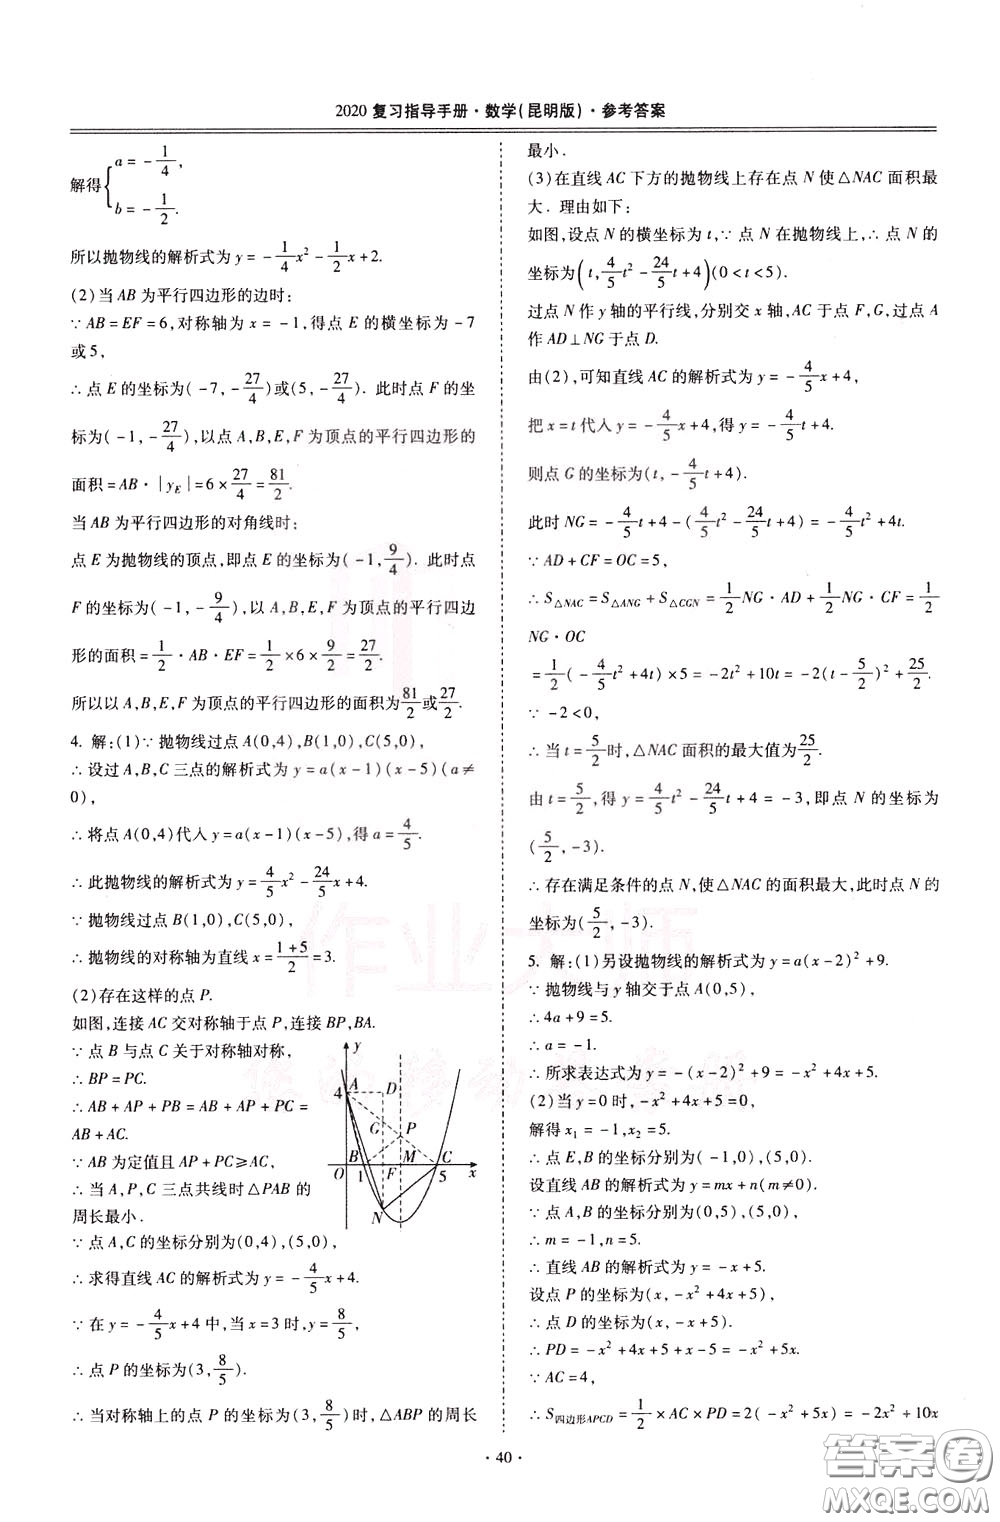 2020 复习指导手册·数学(昆明版)·参考答案
解得{a = -1/4,
b = -1/2.
所以抛物线的解析式为 y = -1/4x² - 1/2x + 2.
(2)当 AB 为平行四边形的边时:
∵ AB = EF = 6,对称轴为 x = -1,得点 E 的横坐标为 -7
或 5,
∴ 点 E 的坐标为( -7, -27/4)或(5, -27/4). 此时点 F 的坐
标为( -1, -27/4),以点 A,B,E,F 为顶点的平行四边形的
面积 = AB·|y_E| = 6 × 27/4 = 81/2.
当 AB 为平行四边形的对角线时:
点 E 为抛物线的顶点,即点 E 的坐标为( -1, 9/4). 此时点
F 的坐标为( -1, -9/4),以 A,B,E,F 为顶点的平行四边
形的面积 = 1/2·AB·EF = 1/2 × 6 × 9/2 = 27/2.
所以以 A,B,E,F 为顶点的平行四边形的面积为81/2或27/2.
4. 解:(1)∵ 抛物线过点 A(0,4),B(1,0),C(5,0),
∴ 设过 A,B,C 三点的解析式为 y = a(x - 1)(x - 5)(a ≠
0),
∴ 将点 A(0,4)代入 y = a(x - 1)(x - 5),得 a = 4/5.
∴ 此抛物线的解析式为 y = 4/5x² - 24/5x + 4.
∵ 抛物线过点 B(1,0),C(5,0),
∴ 抛物线的对称轴为直线 x = (1+5)/2 = 3.
(2)存在这样的点 P.
如图,连接 AC 交对称轴于点 P,连接 BP,BA.
∵ 点 B 与点 C 关于对称轴对称,
∴ BP = PC.
∴ AB + AP + PB = AB + AP + PC =
AB + AC.
∵ AB 为定值且 AP + PC ≥ AC,
∴ 当 A,P,C 三点共线时△PAB 的
周长最小.
y
4 A D
G P
B M C
O 1 F 5 x
N
∵ 点 A,C 的坐标分别为(0,4),(5,0),
∴ 求得直线 AC 的解析式为 y = -4/5x + 4.
∵ 在 y = -4/5x + 4 中,当 x = 3 时,y = 8/5,
∴ 点 P 的坐标为(3, 8/5).
∴ 当对称轴上的点 P 的坐标为(3, 8/5)时,△ABP 的周长
最小.
(3)在直线 AC 下方的抛物线上存在点 N 使△NAC 面积最
大. 理由如下:
如图,设点 N 的横坐标为 t,∵ 点 N 在抛物线上,∴ 点 N 的
坐标为(t, 4/5t² - 24/5t + 4)(0 < t < 5).
过点 N 作 y 轴的平行线,分别交 x 轴,AC 于点 F,G,过点 A
作 AD ⊥ NG 于点 D.
由(2),可知直线 AC 的解析式为 y = -4/5x + 4,
把 x = t 代入 y = -4/5x + 4,得 y = -4/5t + 4.
则点 G 的坐标为(t, -4/5t + 4).
此时 NG = -4/5t + 4 - (4/5t² - 24/5t + 4) = -4/5t² + 4t.
∵ AD + CF = OC = 5,
∴ S△NAC = S△ANG + S△CGN = 1/2NG·AD + 1/2NG·CF = 1/2
NG·OC
= 1/2( -4/5t² + 4t) × 5 = -2t² + 10t = -2(t - 5/2)² + 25/2.
∵ -2 < 0,
∴ 当 t = 5/2时,△NAC 面积的最大值为25/2.
由 t = 5/2,得 y = 4/5t² - 24/5t + 4 = -3,即点 N 的坐标为
(5/2, -3).
∴ 存在满足条件的点 N,使△NAC 的面积最大,此时点 N 的
坐标为(5/2, -3).
5. 解:(1)另设抛物线的解析式为 y = a(x - 2)² + 9.
∵ 抛物线与 y 轴交于点 A(0,5),
∴ 4a + 9 = 5.
∴ a = -1.
∴ 所求表达式为 y = -(x - 2)² + 9 = -x² + 4x + 5.
(2)当 y = 0 时, -x² + 4x + 5 = 0,
解得 x₁ = -1,x₂ = 5.
∴ 点 E,B 的坐标分别为( -1,0),(5,0),
设直线 AB 的解析式为 y = mx + n(m ≠ 0).
∵ 点 A,B 的坐标分别为(0,5),(5,0),
∴ m = -1,n = 5.
∴ 直线 AB 的解析式为 y = -x + 5.
设点 P 的坐标为(x, -x² + 4x + 5),
∴ 点 D 的坐标为(x, -x + 5).
∴ PD = -x² + 4x + 5 + x - 5 = -x² + 5x.
∵ AC = 4,
∴ S四边形APCD = 1/2 × AC × PD = 2( -x² + 5x) = -2x² + 10x
·40·
作业大师
答案圈
MXQE.COM